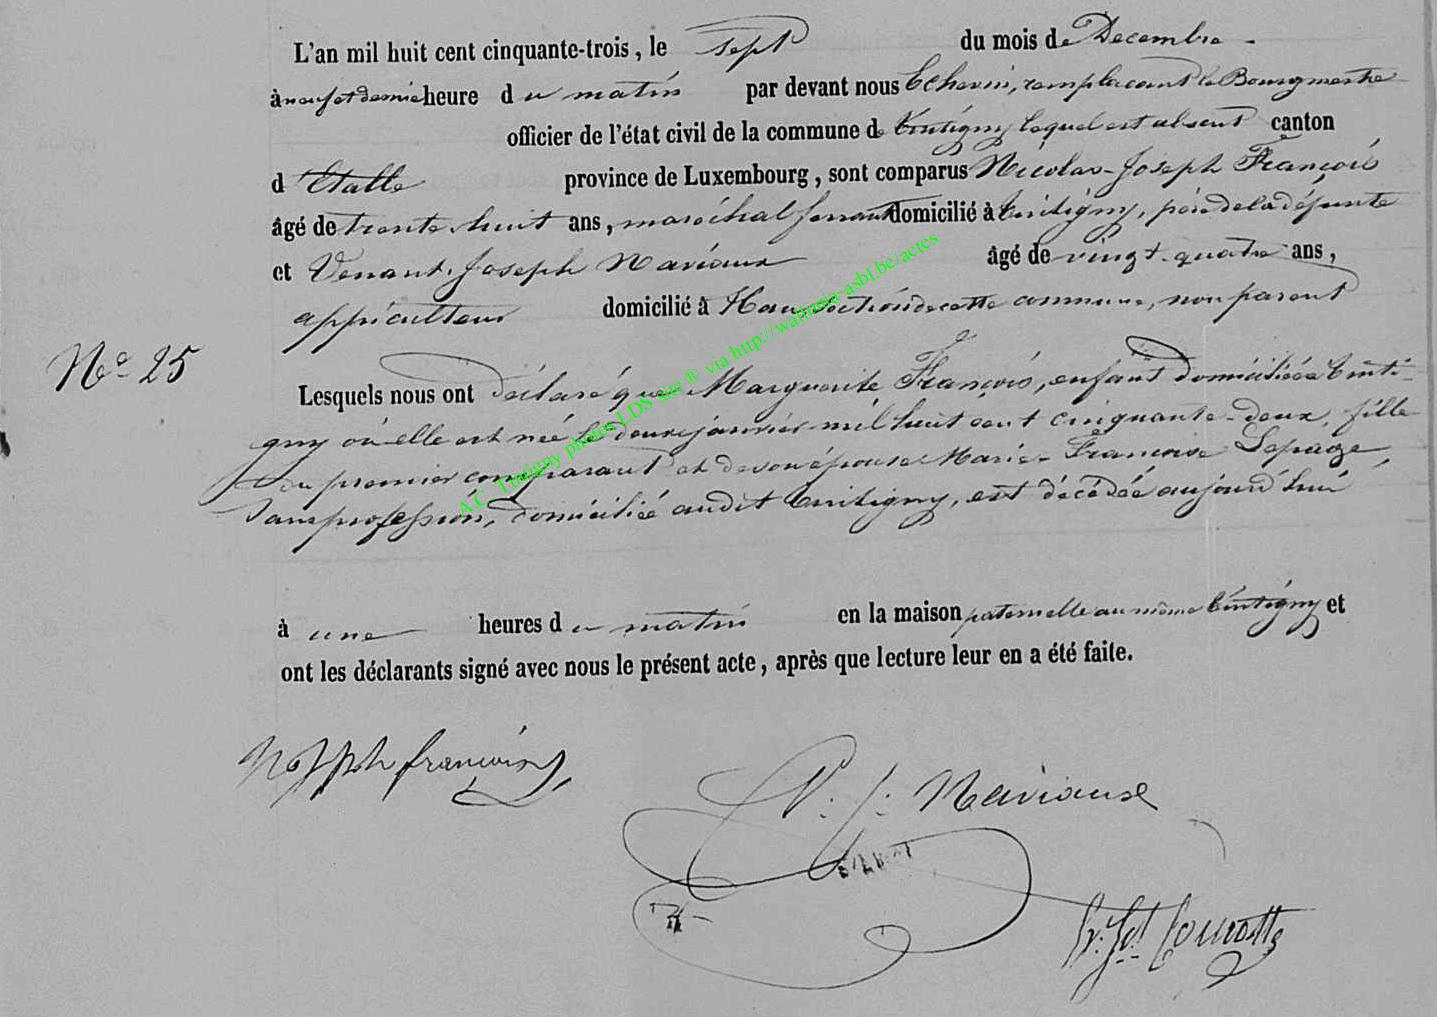 L'an mil huit cent cinquante-trois, le sept du mois de Decembre
à neuf et demie heure du matin par devant nous Echevin, remplacant le Bourgmestre
officier de l'état civil de la commune de Tintigny lequel est absent canton
d'Etalle province de Luxembourg, sont comparus Nicolas-Joseph François
âgé de trente huit ans, maréchal ferrant domicilié à Tintigny, père de la défunte
et Venant-Joseph Naviaux âgé de vingt-quatre ans,
appriculteur domicilié à Han, section de cette commune, non parent
N° 25
Lesquels nous ont déclaré que Marguerite François, enfant domiciliée à Tinti-
gny où elle est née le douze janvier mil huit cent cinquante-deux, fille
du premier comparant et de son épouse Marie-Françoise Lepage,
sans profession, domiciliée audit Tintigny, est décédée aujourd'hui
à une heures du matin en la maison paternelle au même Tintigny et
ont les déclarants signé avec nous le présent acte, après que lecture leur en a été faite.
A.C. Tintigny photos LDS site ® via http://wallonia-asbl.be/actes
françois
V. J. Naviaux